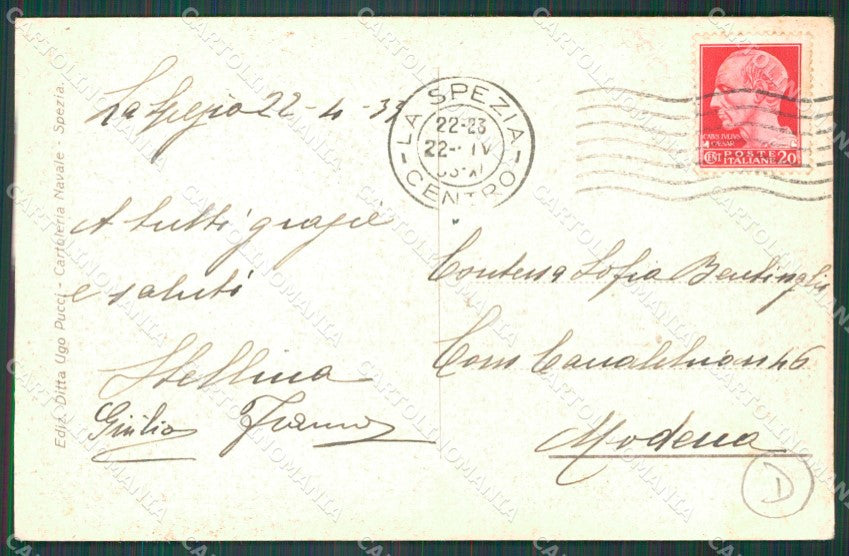 La Spezia 22-4-33
A tutti grazie
e saluti
Stellina
Giulio Franco
Contessa Sofia
Modena
D
LA SPEZIA
22-23
22 · IV
CENTRO
CAIVS IVLIVS
CAESAR
CENT POSTE 20
ITALIANE
Ediz. Ditta Ugo Pucci - Cartoleria Navale - Spezia.
CARTOLINOMANIA